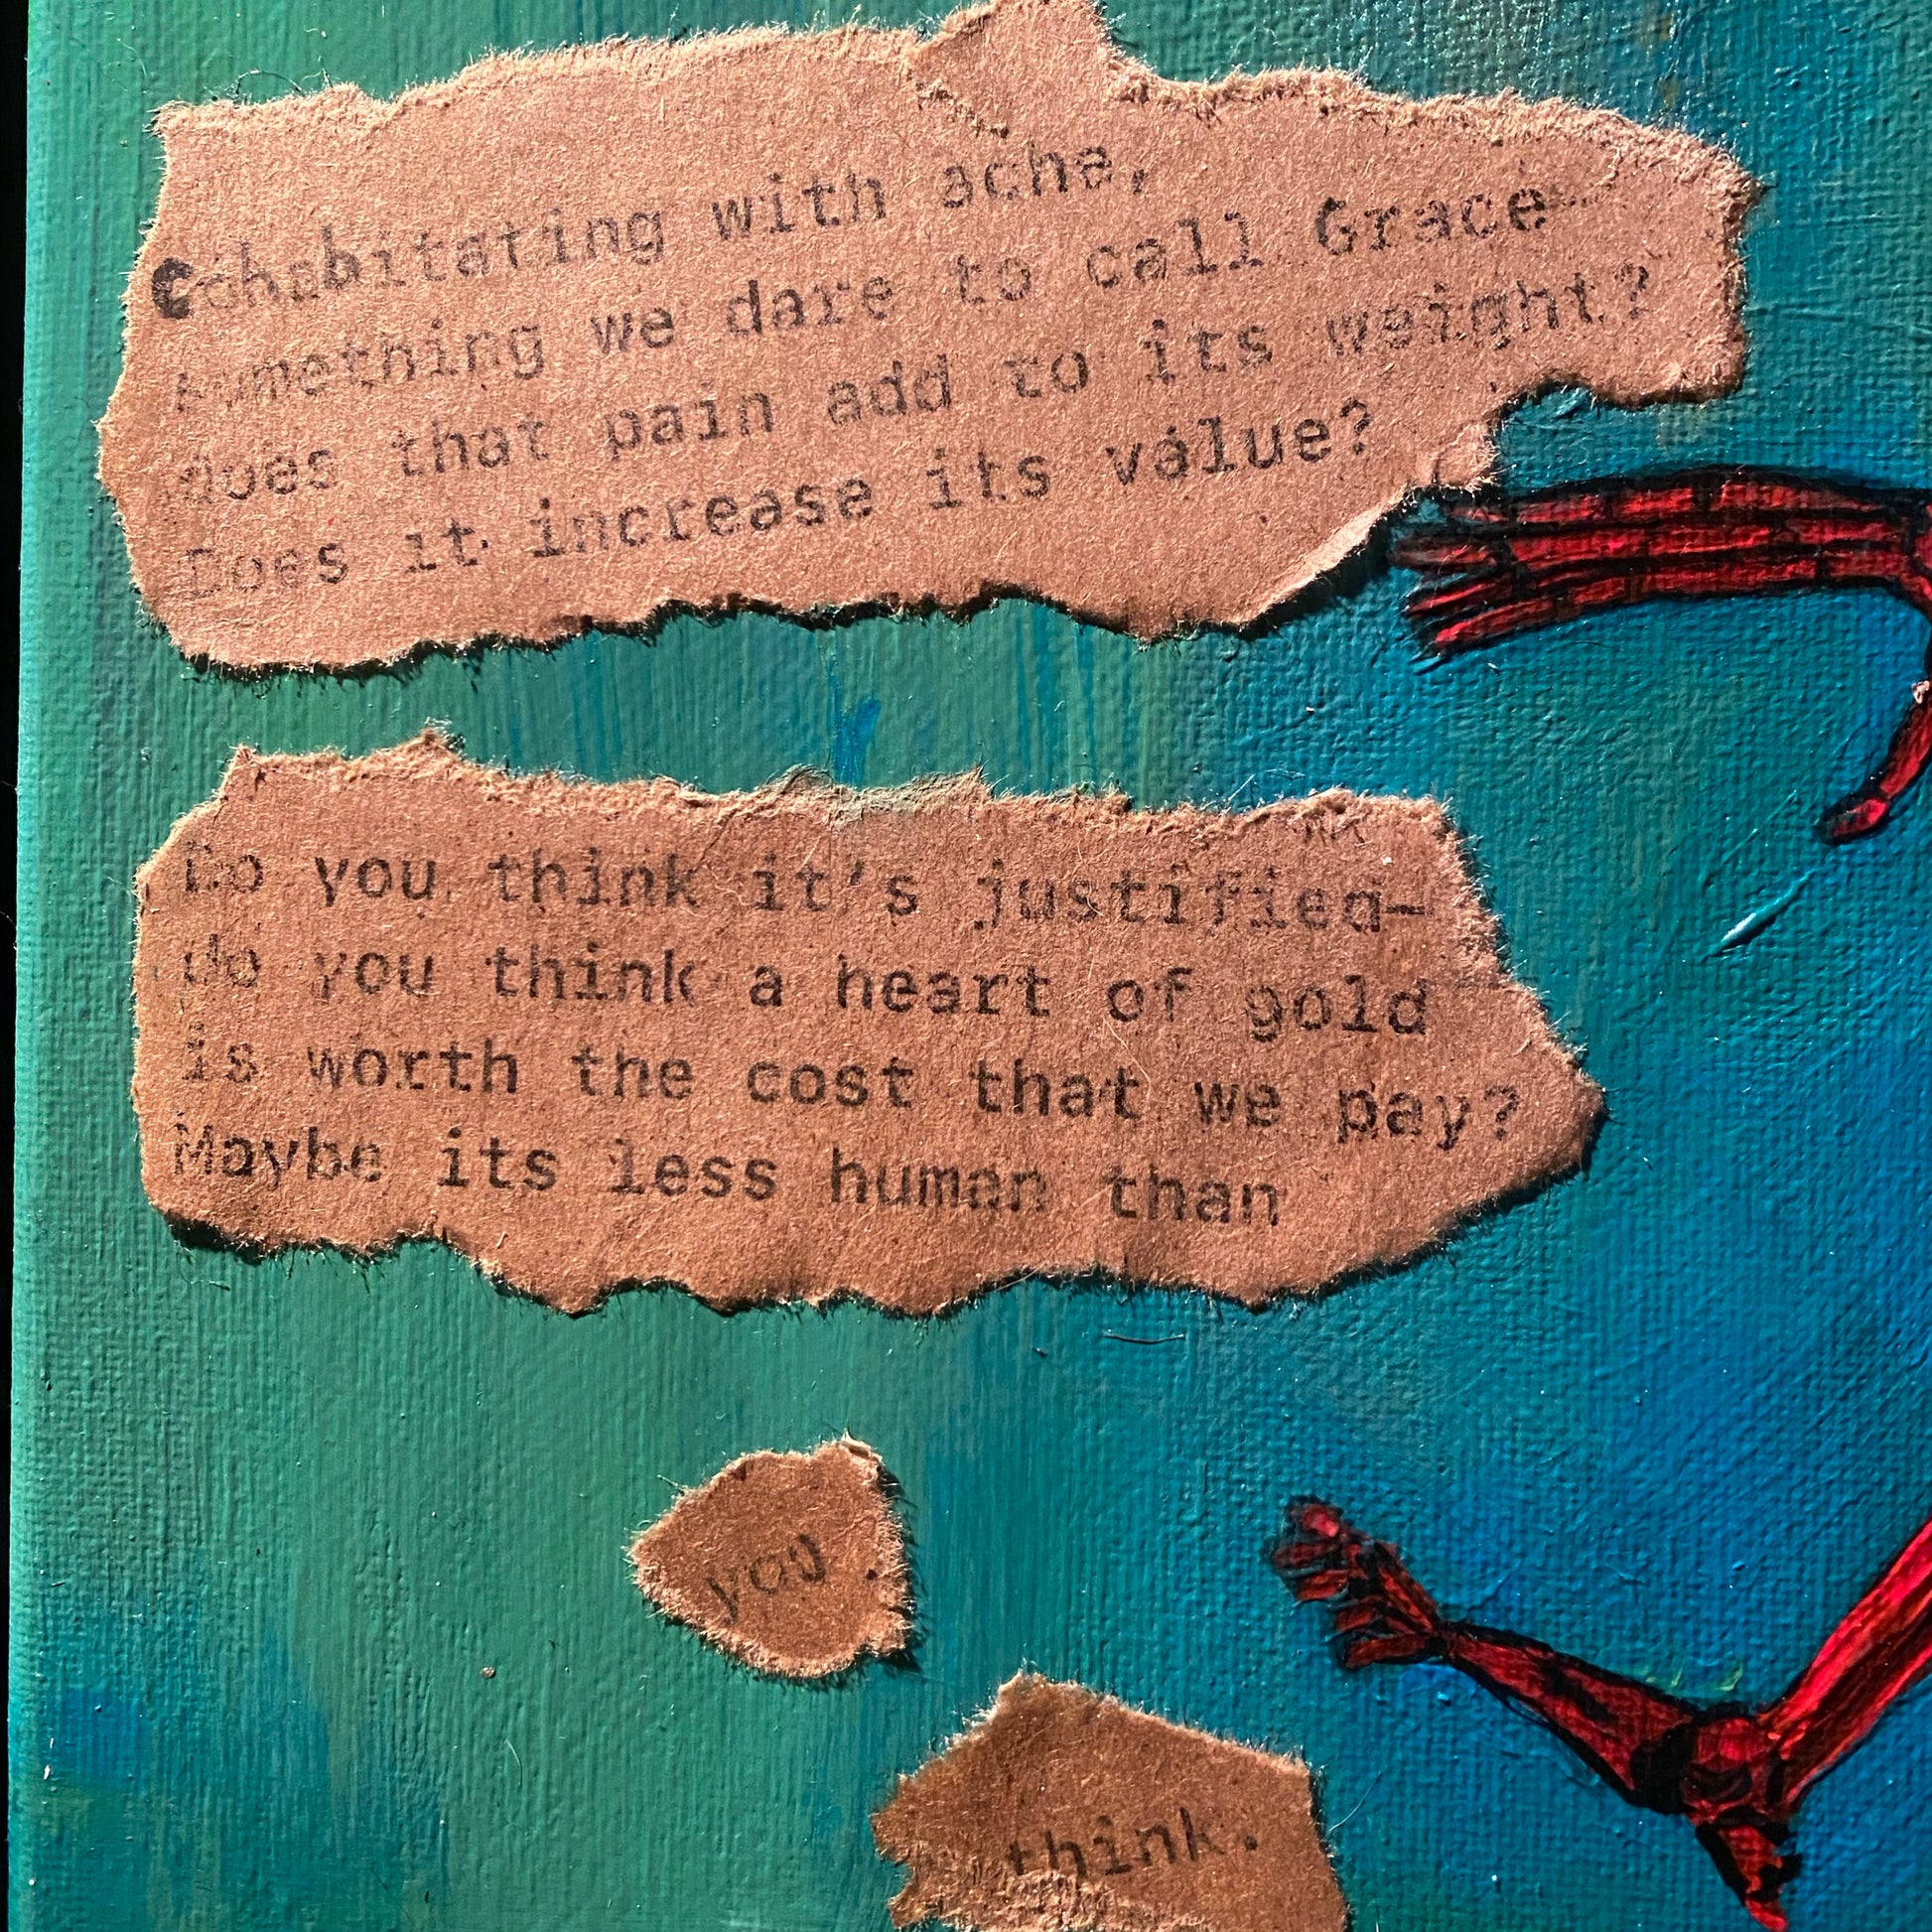 Cohabitating with ache,
something we dare to call Grace
does that pain add to its weight?
Does it increase its value?
Do you think it's justified—
do you think a heart of gold
is worth the cost that we pay?
Maybe its less human than
you
think.